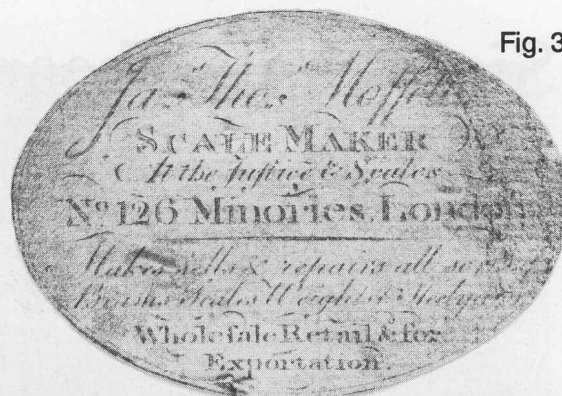 Fig. 3
Jas. Thos. Moffett
SCALE MAKER
At the Justice & Scales
No. 126 Minories, London
Makes sells & repairs all sorts
Beams Scales Weights & Steelyards
Wholesale Retail & for
Exportation.